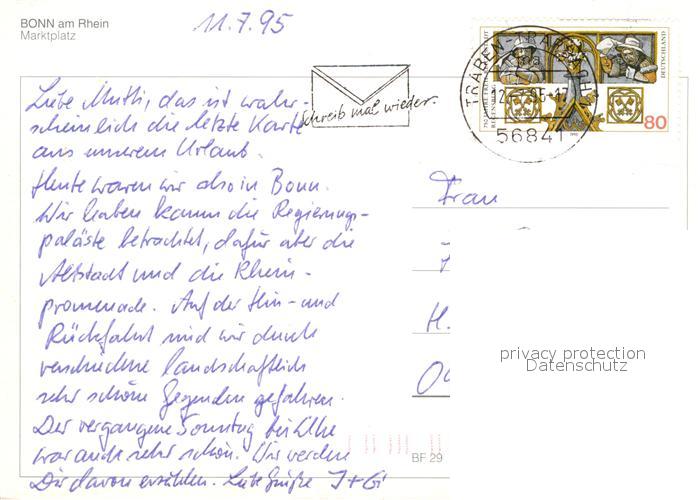 BONN am Rhein
Marktplatz
11.7.95
Schreib mal wieder.
TRABEN-TRARBACH
56841
DEUTSCHLAND
80
Liebe Mutti, das ist wahr-
scheinlich die letzte Karte
aus unserem Urlaub.
Heute waren wir also in Bonn.
Wir haben kaum die Regierungs-
paläste betrachtet, dafür aber die
Altstadt und die Rhein-
promenade. Auf der Hin- und
Rückfahrt sind wir durch
verschiedene landschaftlich
sehr schöne Gegenden gefahren.
Der vergangene Sonntag bei
war auch sehr schön. Wir werden
Dir davon erzählen. Liebe Grüße J+G
Frau
H.
privacy protection
Datenschutz
BF 29